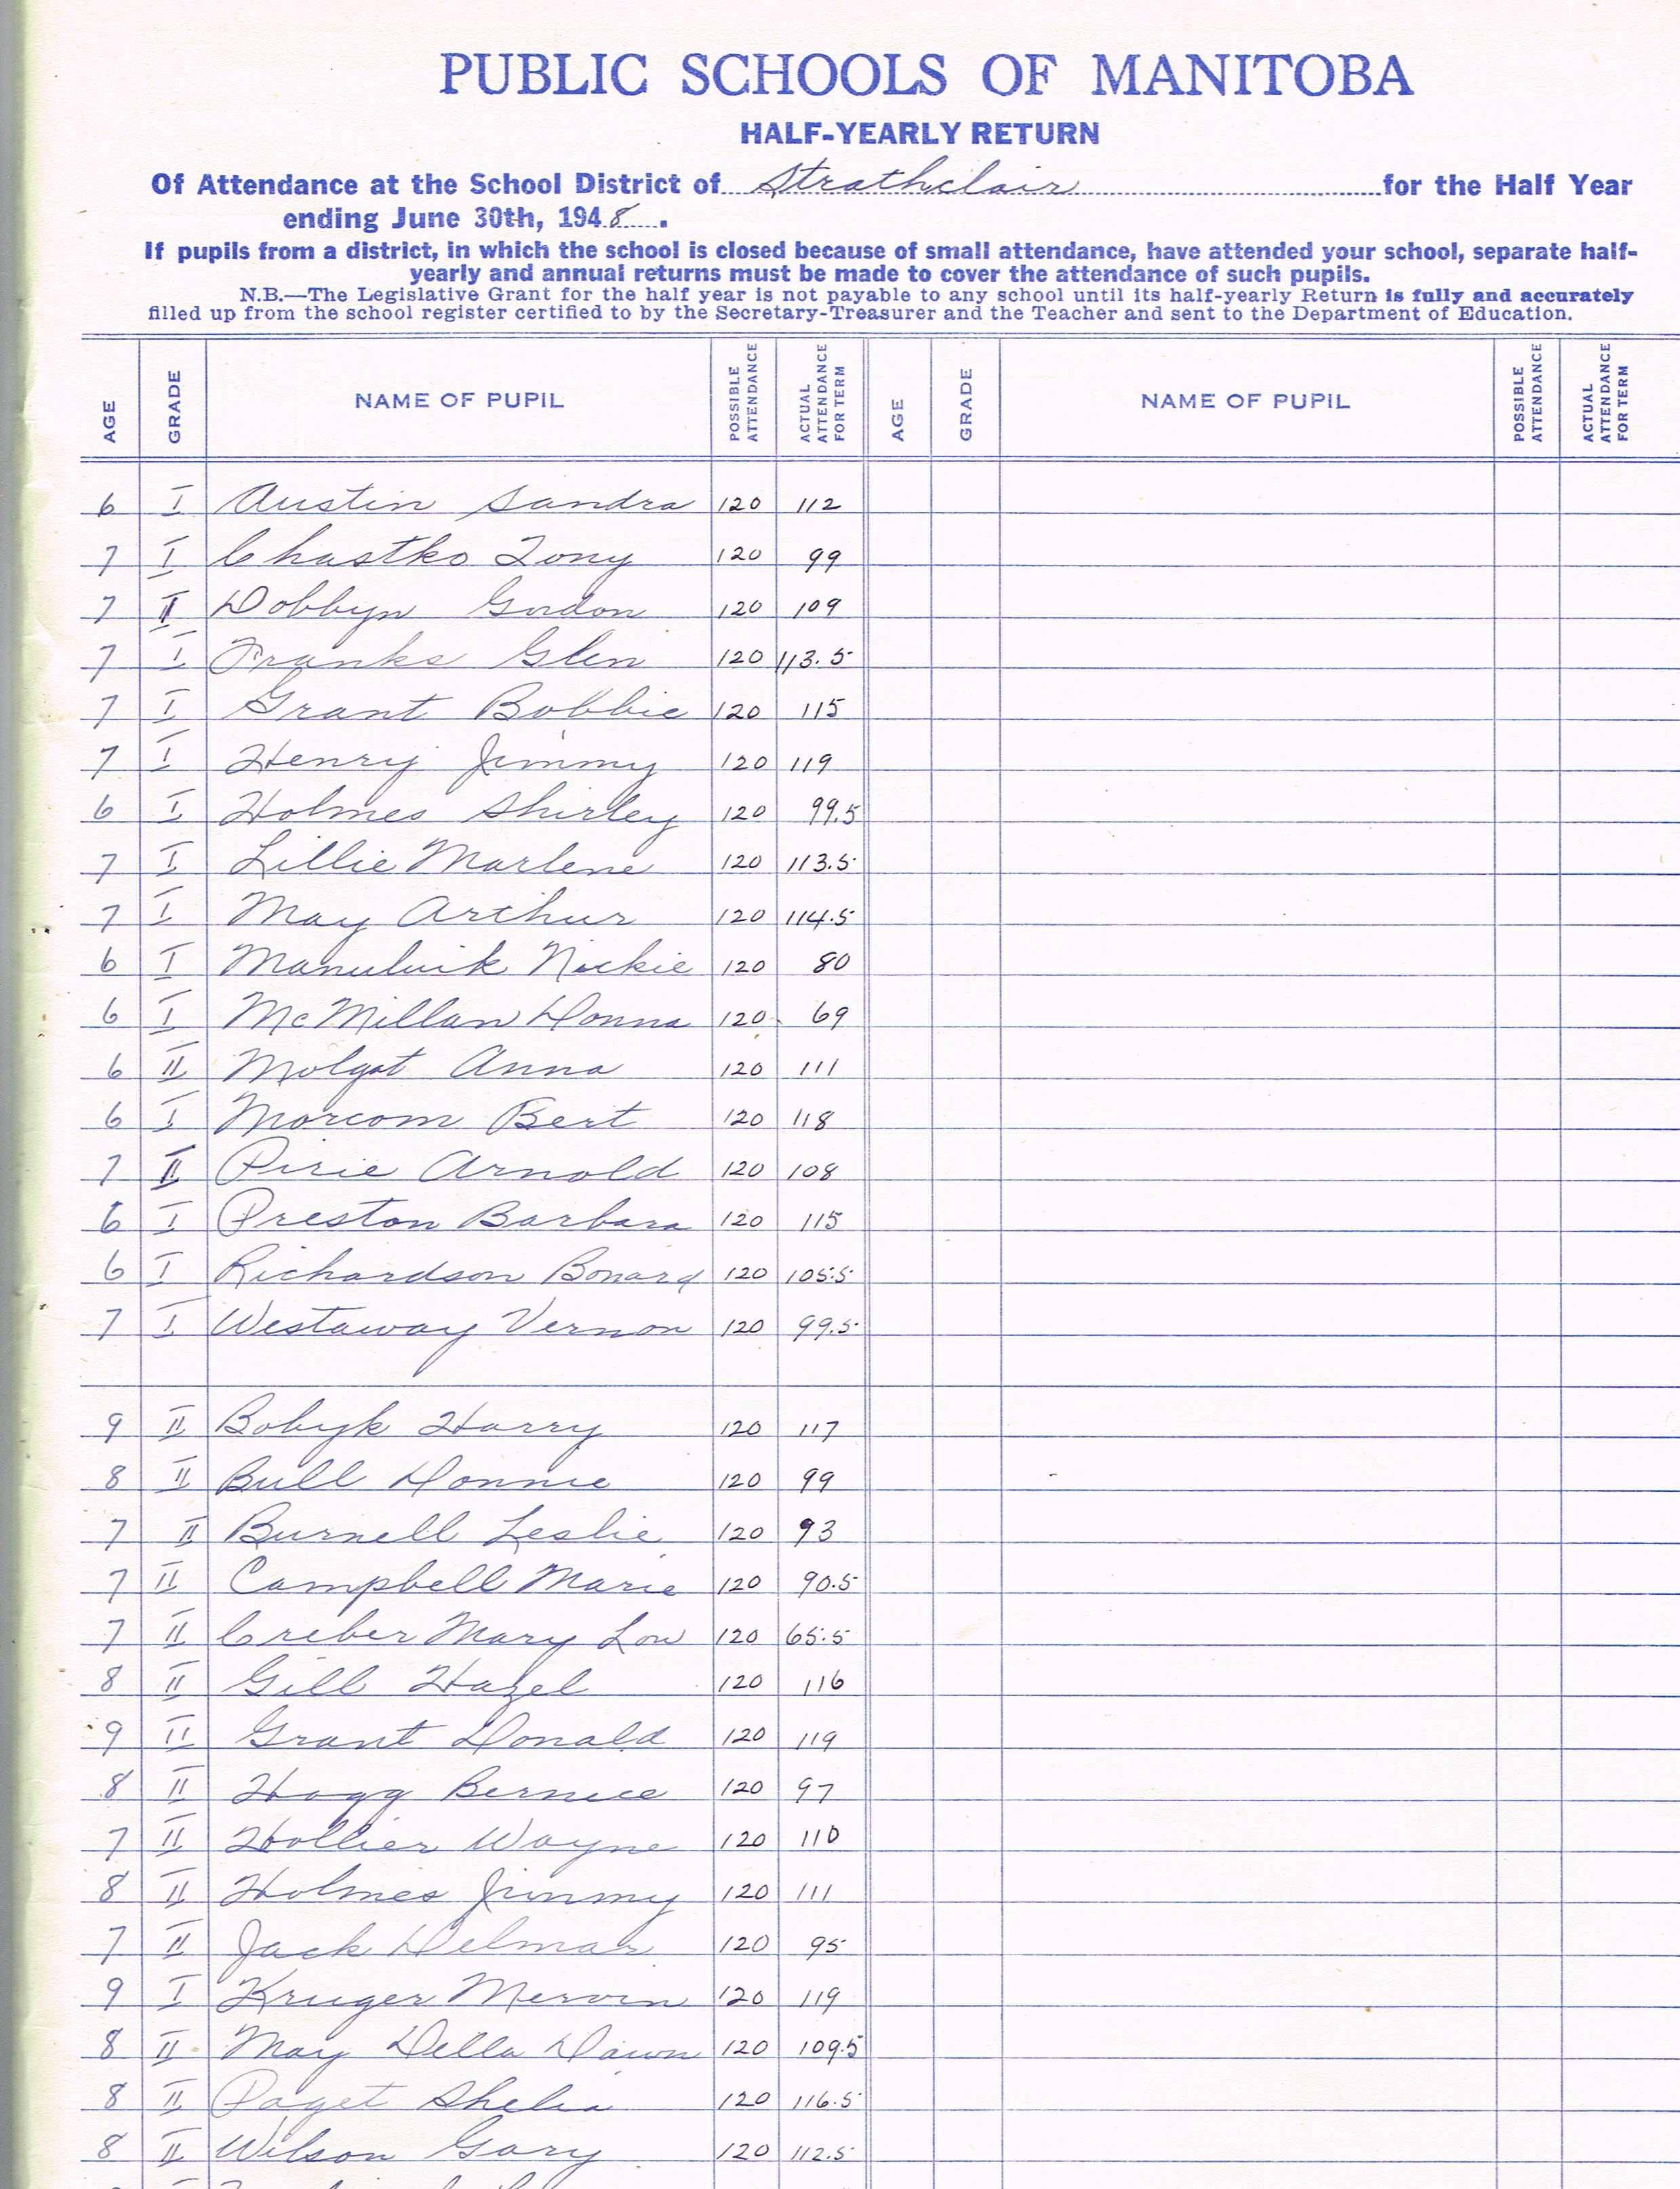 PUBLIC SCHOOLS OF MANITOBA
HALF-YEARLY RETURN
Of Attendance at the School District of Strathclair for the Half Year
ending June 30th, 1948.
If pupils from a district, in which the school is closed because of small attendance, have attended your school, separate half-
yearly and annual returns must be made to cover the attendance of such pupils.
N.B.—The Legislative Grant for the half year is not payable to any school until its half-yearly Return is fully and accurately
filled up from the school register certified to by the Secretary-Treasurer and the Teacher and sent to the Department of Education.
AGE GRADE NAME OF PUPIL POSSIBLE ATTENDANCE ACTUAL ATTENDANCE FOR TERM AGE GRADE NAME OF PUPIL POSSIBLE ATTENDANCE ACTUAL ATTENDANCE FOR TERM
6 I Austin Sandra 120 112
7 I Chastko Tony 120 99
7 II Dobbyn Gordon 120 109
7 I Franks Glen 120 113.5
7 I Grant Bobbie 120 115
7 I Henry Jimmy 120 119
6 I Holmes Shirley 120 99.5
7 I Lillie Marlene 120 113.5
7 I May Arthur 120 114.5
6 I Nickie 120 80
6 I McMillan Donna 120 69
6 II Molgat Anna 120 111
6 I Morcom Bert 120 118
7 II Pirie Arnold 120 108
6 I Preston Barbara 120 115
6 I Richardson Bonard 120 105.5
7 I Westaway Vernon 120 99.5
9 II Bobyk Harry 120 117
8 II Bull Donnie 120 99
7 II Burnell Leslie 120 93
7 II Campbell Marie 120 90.5
7 II Creber Mary Lou 120 65.5
8 II Gill Hazel 120 116
9 II Grant Donald 120 119
8 II Hogg Bernice 120 97
7 II Hollier Wayne 120 110
8 II Holmes Jimmy 120 111
7 II Jack Delmar 120 95
9 I Kruger Mervin 120 119
8 II May Della Dawn 120 109.5
8 II Paget Shelia 120 116.5
8 II Wilson Gary 120 112.5